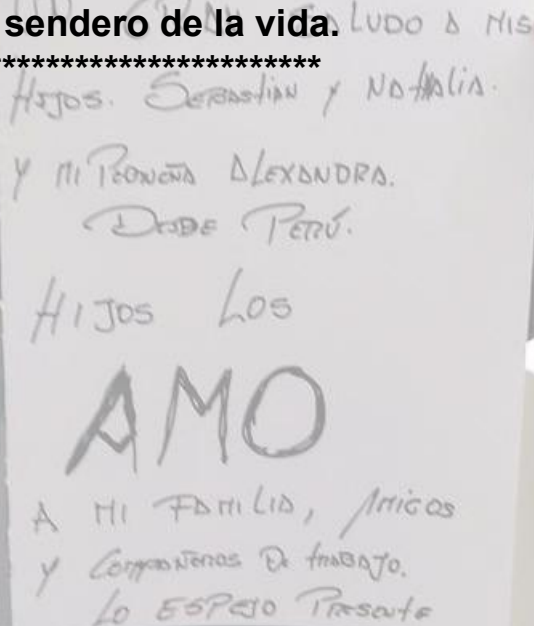 sendero de la vida.
***********************
SALUDO A MIS
HIJOS. SEBASTIAN Y NATHALIA.
Y MI PEQUEÑA ALEXANDRA.
DESDE PERÚ.
HIJOS LOS
AMO
A MI FAMILIA, AMIGOS
Y COMPAÑEROS DE TRABAJO.
LO ESPEJO PRESENTE